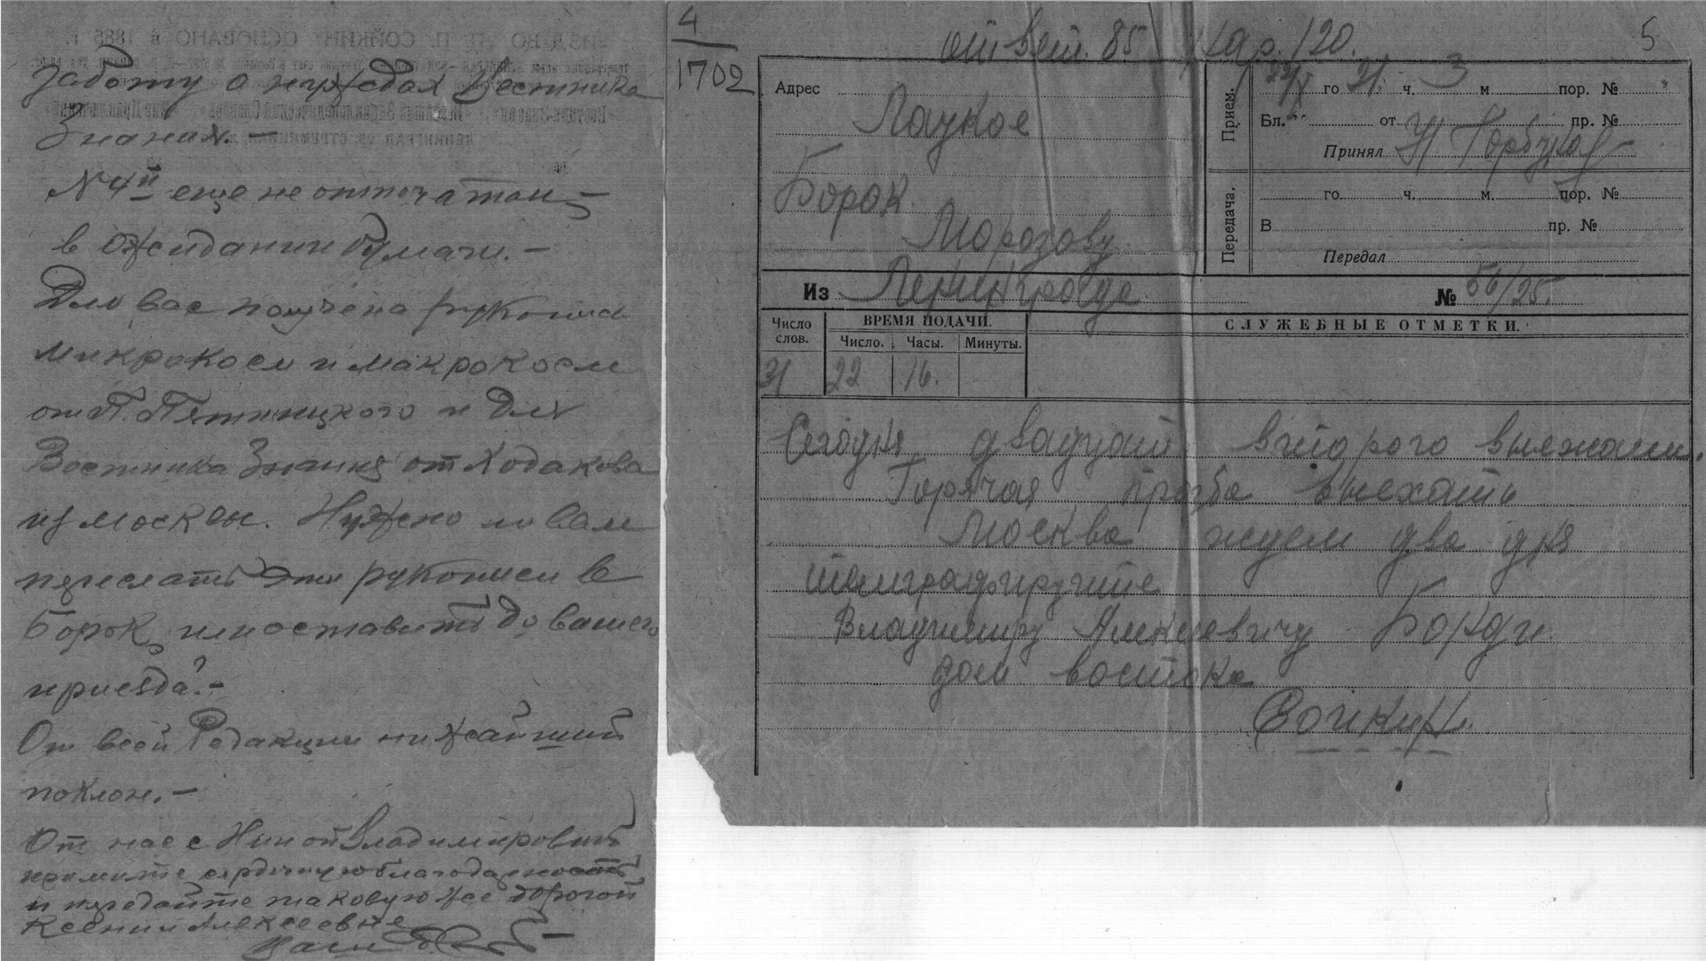 заботу о нуждах Вестника
Знания. —
N 4й еще не отпечатан —
в ожидании бумаги. —
Для вас получена рукопись
микрокосм и макрокосм
от П. Пятницкого и для
Вестника Знания от Ходакова
из Москвы. Нужно ли вам
переслать эти рукописи в
Борок, или оставить до вашего
приезда? —
От всей Редакции нижайший
поклон. —
От нас с Ниной Владимировной
примите сердечную благодарность
и передайте таковую же дорогой
Ксении Алексеевне
Ваш
4
1702
ответ. 85 Кар. 120.
5
Адрес
Лоцкое
Борок
Морозову
Прием.
го 21 ч. 3 м пор. №
Бл. от пр. №
Принял Горбунов
Передача.
го ч. м. пор. №
В пр. №
Передал
Из Ленинграда № 56/25.
Число слов.
ВРЕМЯ ПОДАЧИ.
Число. Часы. Минуты.
СЛУЖЕБНЫЕ ОТМЕТКИ.
31 22 16.
Сегодня двадцать второго выезжаем.
Горячая прозба выехать
Москва ждем два дня
телеграфируйте
Владимиру Алексеевичу Бонди
дом востока
Сойкин.